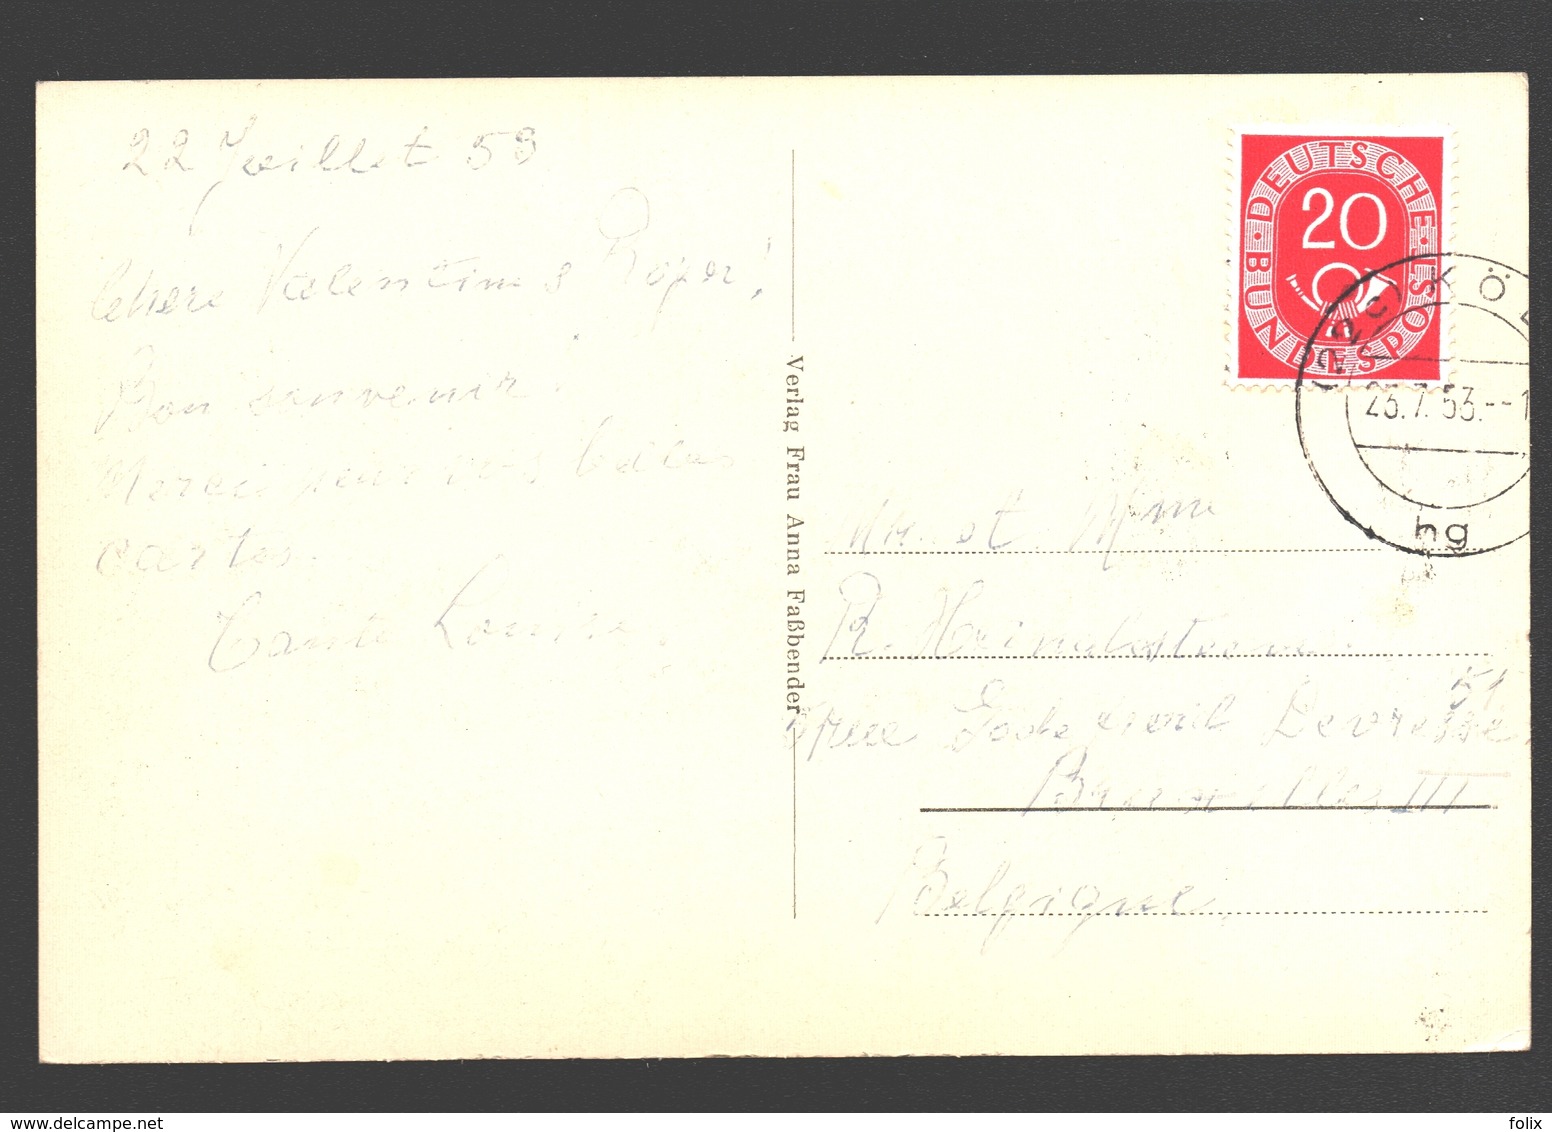 22 Juillet 53
Chère Valentine & Roger!
Bon souvenir.
Merci pour vos belles
cartes.
Tante Louise.
Verlag Frau Anna Faßbender
DEUTSCHE BUNDESPOST
20
(22c) KÖL
23.7.53.--1
hg
Mr. et Mme
R.
51
Rue Godefroid Devreese
Bruxelles III
Belgique.
www.delcampe.net
folix